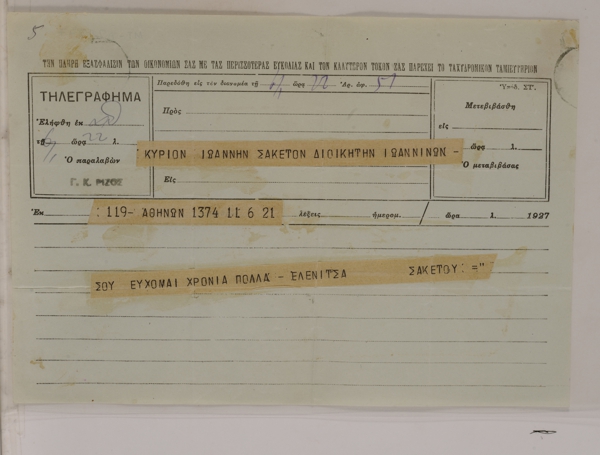 5
ΤΗΝ ΠΛΗΡΗ ΕΞΑΣΦΑΛΙΣΙΝ ΤΩΝ ΟΙΚΟΝΟΜΙΩΝ ΣΑΣ ΜΕ ΤΑΣ ΠΕΡΙΣΣΟΤΕΡΑΣ ΕΥΚΟΛΙΑΣ ΚΑΙ ΤΟΝ ΚΑΛΥΤΕΡΟΝ ΤΟΚΟΝ ΣΑΣ ΠΑΡΕΧΕΙ ΤΟ ΤΑΧΥΔΡΟΜΙΚΟΝ ΤΑΜΙΕΥΤΗΡΙΟΝ
ΤΗΛΕΓΡΑΦΗΜΑ
Ἐλήφθη ἐκ
τῇ ὥρᾳ 22 λ.
Ὁ παραλαβὼν
Γ. Κ. ΡΙΖΟΣ
Παρεδόθη εἰς τὸν διανομέα τῇ ὥρᾳ 22 Ἀρ. ἀφ. 51
Πρὸς
ΚΥΡΙΟΝ ΙΩΑΝΝΗΝ ΣΑΚΕΤΟΝ ΔΙΟΙΚΗΤΗΝ ΙΩΑΝΝΙΝΩΝ -
Εἰς
Ὑπόδ. ΣΤ′.
Μετεβιβάσθη
εἰς
ὥρᾳ λ.
Ὁ μεταβιβάσας
Ἐκ : 119- ΑΘΗΝΩΝ 1374 11 6 21 λέξεις ἡμερομ. / ὥρα λ. 1927
ΣΟΥ ΕΥΧΟΜΑΙ ΧΡΟΝΙΑ ΠΟΛΛΑ - ΕΛΕΝΙΤΣΑ ΣΑΚΕΤΟΥ : ="